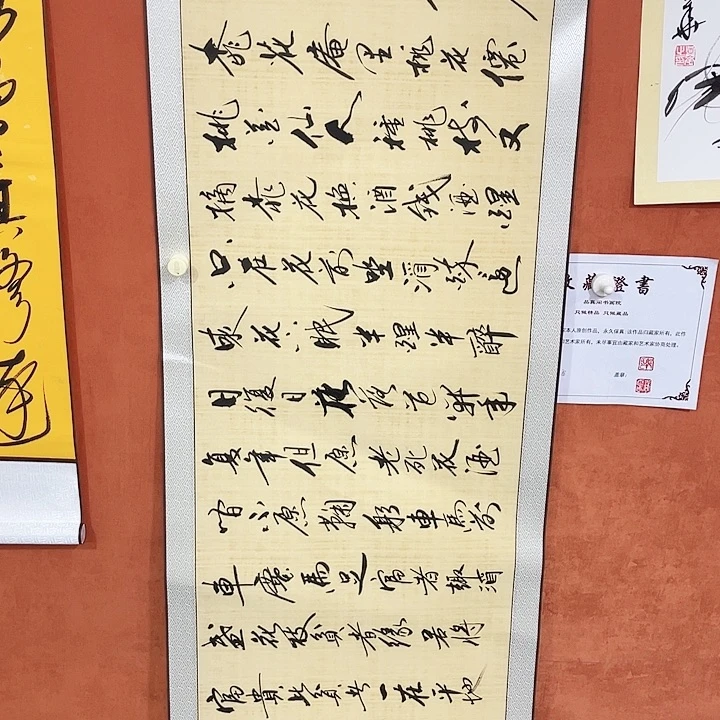 桃花庵里桃花僊
桃花仙人種桃樹又
摘桃花換酒錢酒醒
只在花前坐酒醉還
來花下眠半醒半醉
日復日花落花開年
復年但願老死花酒
間不願鞠躬車馬前
車塵馬足富者趣酒
盞花枝貧者緣若將
富貴比貧者一在平地
藏證書
只做精品 只做藏品
本人原创作品，永久保真！该作品归藏家所有，此作
艺术家所有，未尽事宜由藏家和艺术家协商处理。
盖章：